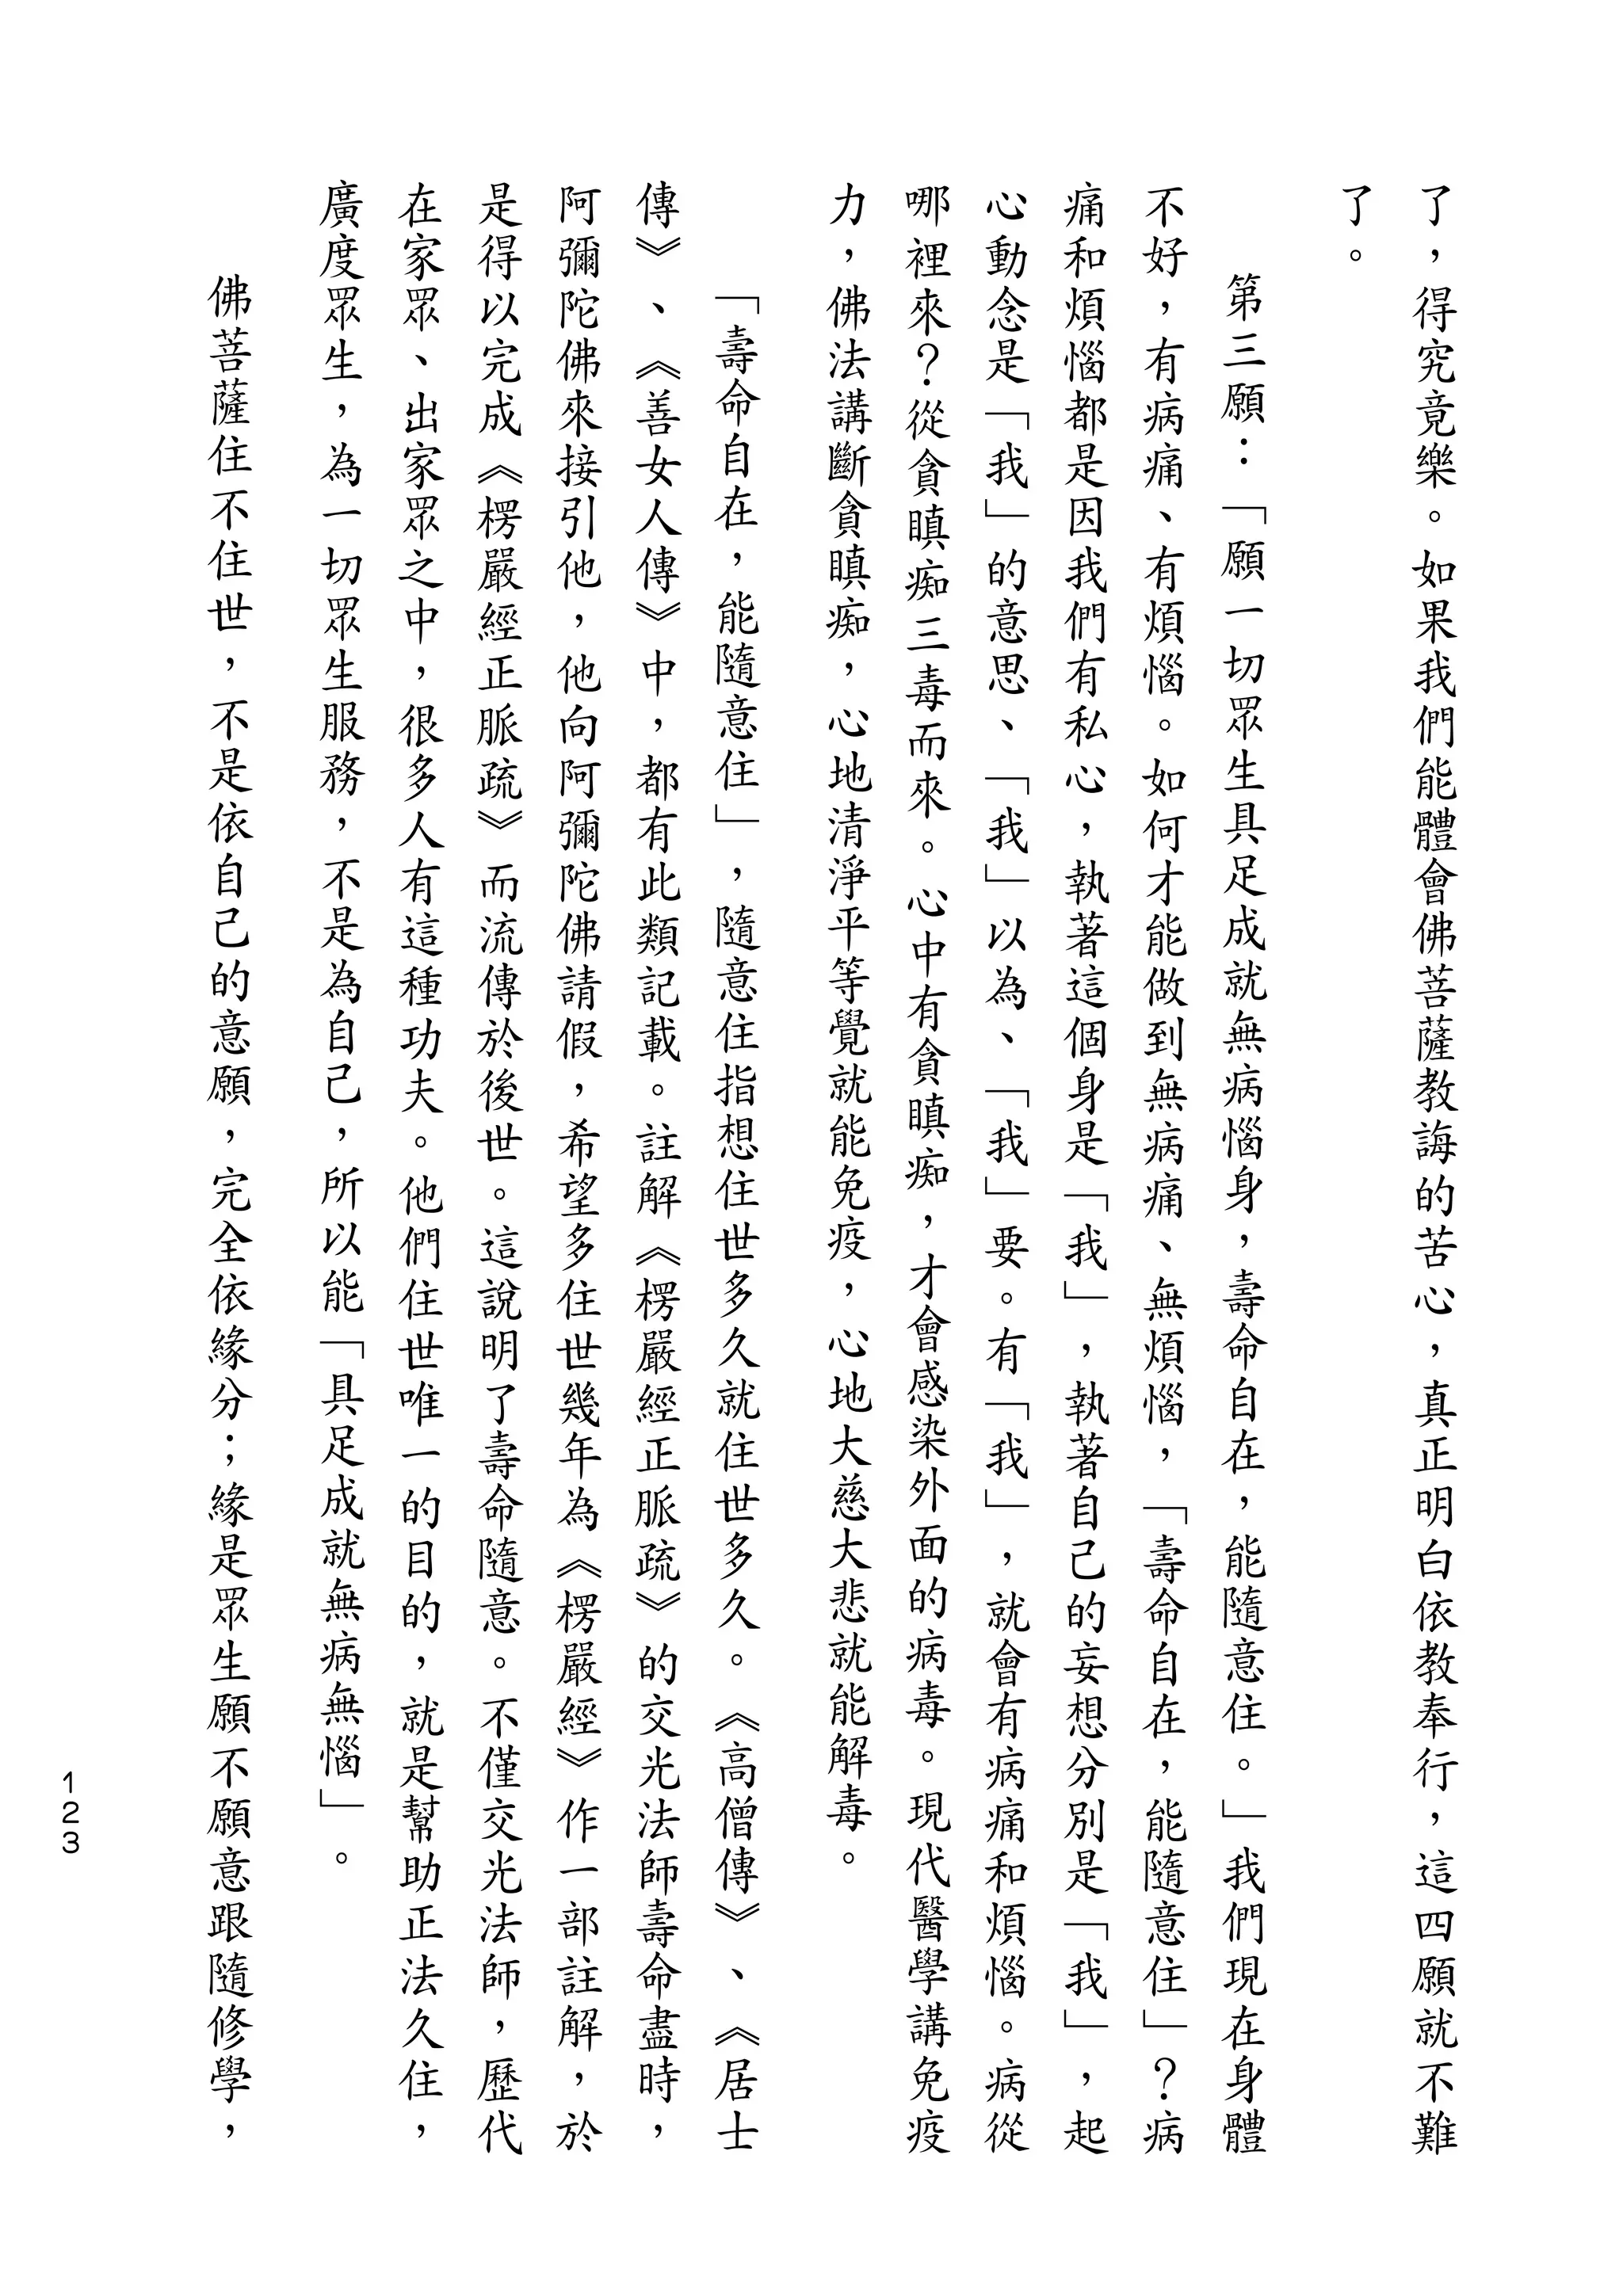 了，得究竟樂。如果我們能體會佛菩薩教誨的苦心，真正明白依教奉行，這四願就不難
了。
第三願：「願一切眾生具足成就無病惱身，壽命自在，能隨意住。」我們現在身體
不好，有病痛、有煩惱。如何才能做到無病痛、無煩惱，「壽命自在，能隨意住」？病
痛和煩惱都是因我們有私心，執著這個身是「我」，執著自己的妄想分別是「我」，起
心動念是「我」的意思、「我」以為、「我」要。有「我」，就會有病痛和煩惱。病從
哪裡來？從貪瞋痴三毒而來。心中有貪瞋痴，才會感染外面的病毒。現代醫學講免疫
力，佛法講斷貪瞋痴，心地清淨平等覺就能免疫，心地大慈大悲就能解毒。
「壽命自在，能隨意住」，隨意住指想住世多久就住世多久。《高僧傳》、《居士
傳》、《善女人傳》中，都有此類記載。註解《楞嚴經正脈疏》的交光法師壽命盡時，
阿彌陀佛來接引他，他向阿彌陀佛請假，希望多住世幾年為《楞嚴經》作一部註解，於
是得以完成《楞嚴經正脈疏》而流傳於後世。這說明了壽命隨意。不僅交光法師，歷代
在家眾、出家眾之中，很多人有這種功夫。他們住世唯一的目的，就是幫助正法久住，
廣度眾生，為一切眾生服務，不是為自己，所以能「具足成就無病無惱」。
佛菩薩住不住世，不是依自己的意願，完全依緣分；緣是眾生願不願意跟隨修學，
123